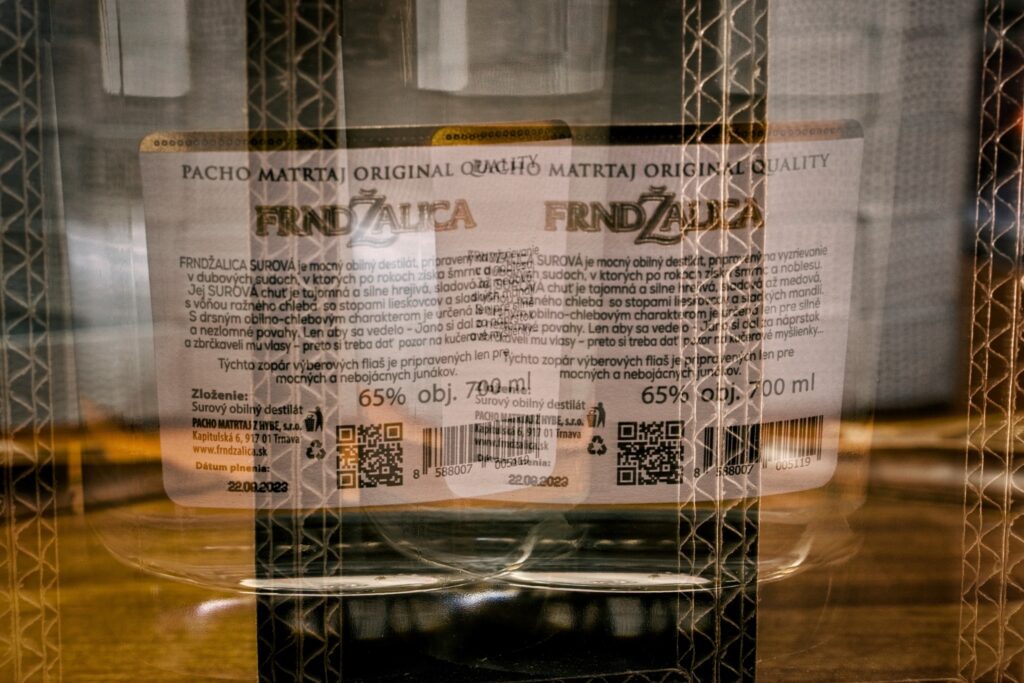 PACHO MATRTAJ ORIGINAL QUALITY
FRNDŽALICA
FRNDŽALICA SUROVÁ je mocný obilný destilát, pripravený
v dubových sudoch, v ktorých po rokoch získa šmrnc a
Jej SUROVÁ chuť je tajomná a silne hrejivá, sladová
s vôňou ražného chleba so stopami lieskovcov a
S drsným obilno-chlebovým charakterom je určená
a nezlomné povahy. Len aby sa vedelo - Jano si dal
a zbrčkaveli mu vlasy - preto si treba dať pozor na
Týchto zopár výberových fliaš je pripravených len pre
mocných a nebojácnych junákov.
65% obj. 700 ml
Zloženie:
Surový obilný destilát
PACHO MATRTAJ Z HYBE, s.r.o.
Kapitulská 6, 917 01 Trnava
www.frndzalica.sk
Dátum plnenia:
22.09.2023
8 588007 005119
PACHO MATRTAJ ORIGINAL QUALITY
FRNDŽALICA
SUROVÁ je mocný obilný destilát, pripravený na vyzrievanie
sudoch, v ktorých po rokoch získa šmrnc a noblesu.
chuť je tajomná a silne hrejivá, sladová až medová,
ražného chleba so stopami lieskovcov a sladkých mandlí.
obilno-chlebovým charakterom je určená len pre silné
povahy. Len aby sa vedelo - Jano si dal za náprstok
mu vlasy - preto si treba dať pozor na kučeravé myšlienky...
Týchto zopár výberových fliaš je pripravených len pre
mocných a nebojácnych junákov.
65% obj. 700 ml
Surový obilný destilát
PACHO MATRTAJ Z HYBE, s.r.o.
Kapitulská 6, 917 01 Trnava
www.frndzalica.sk
22.09.2023
8 588007 005119